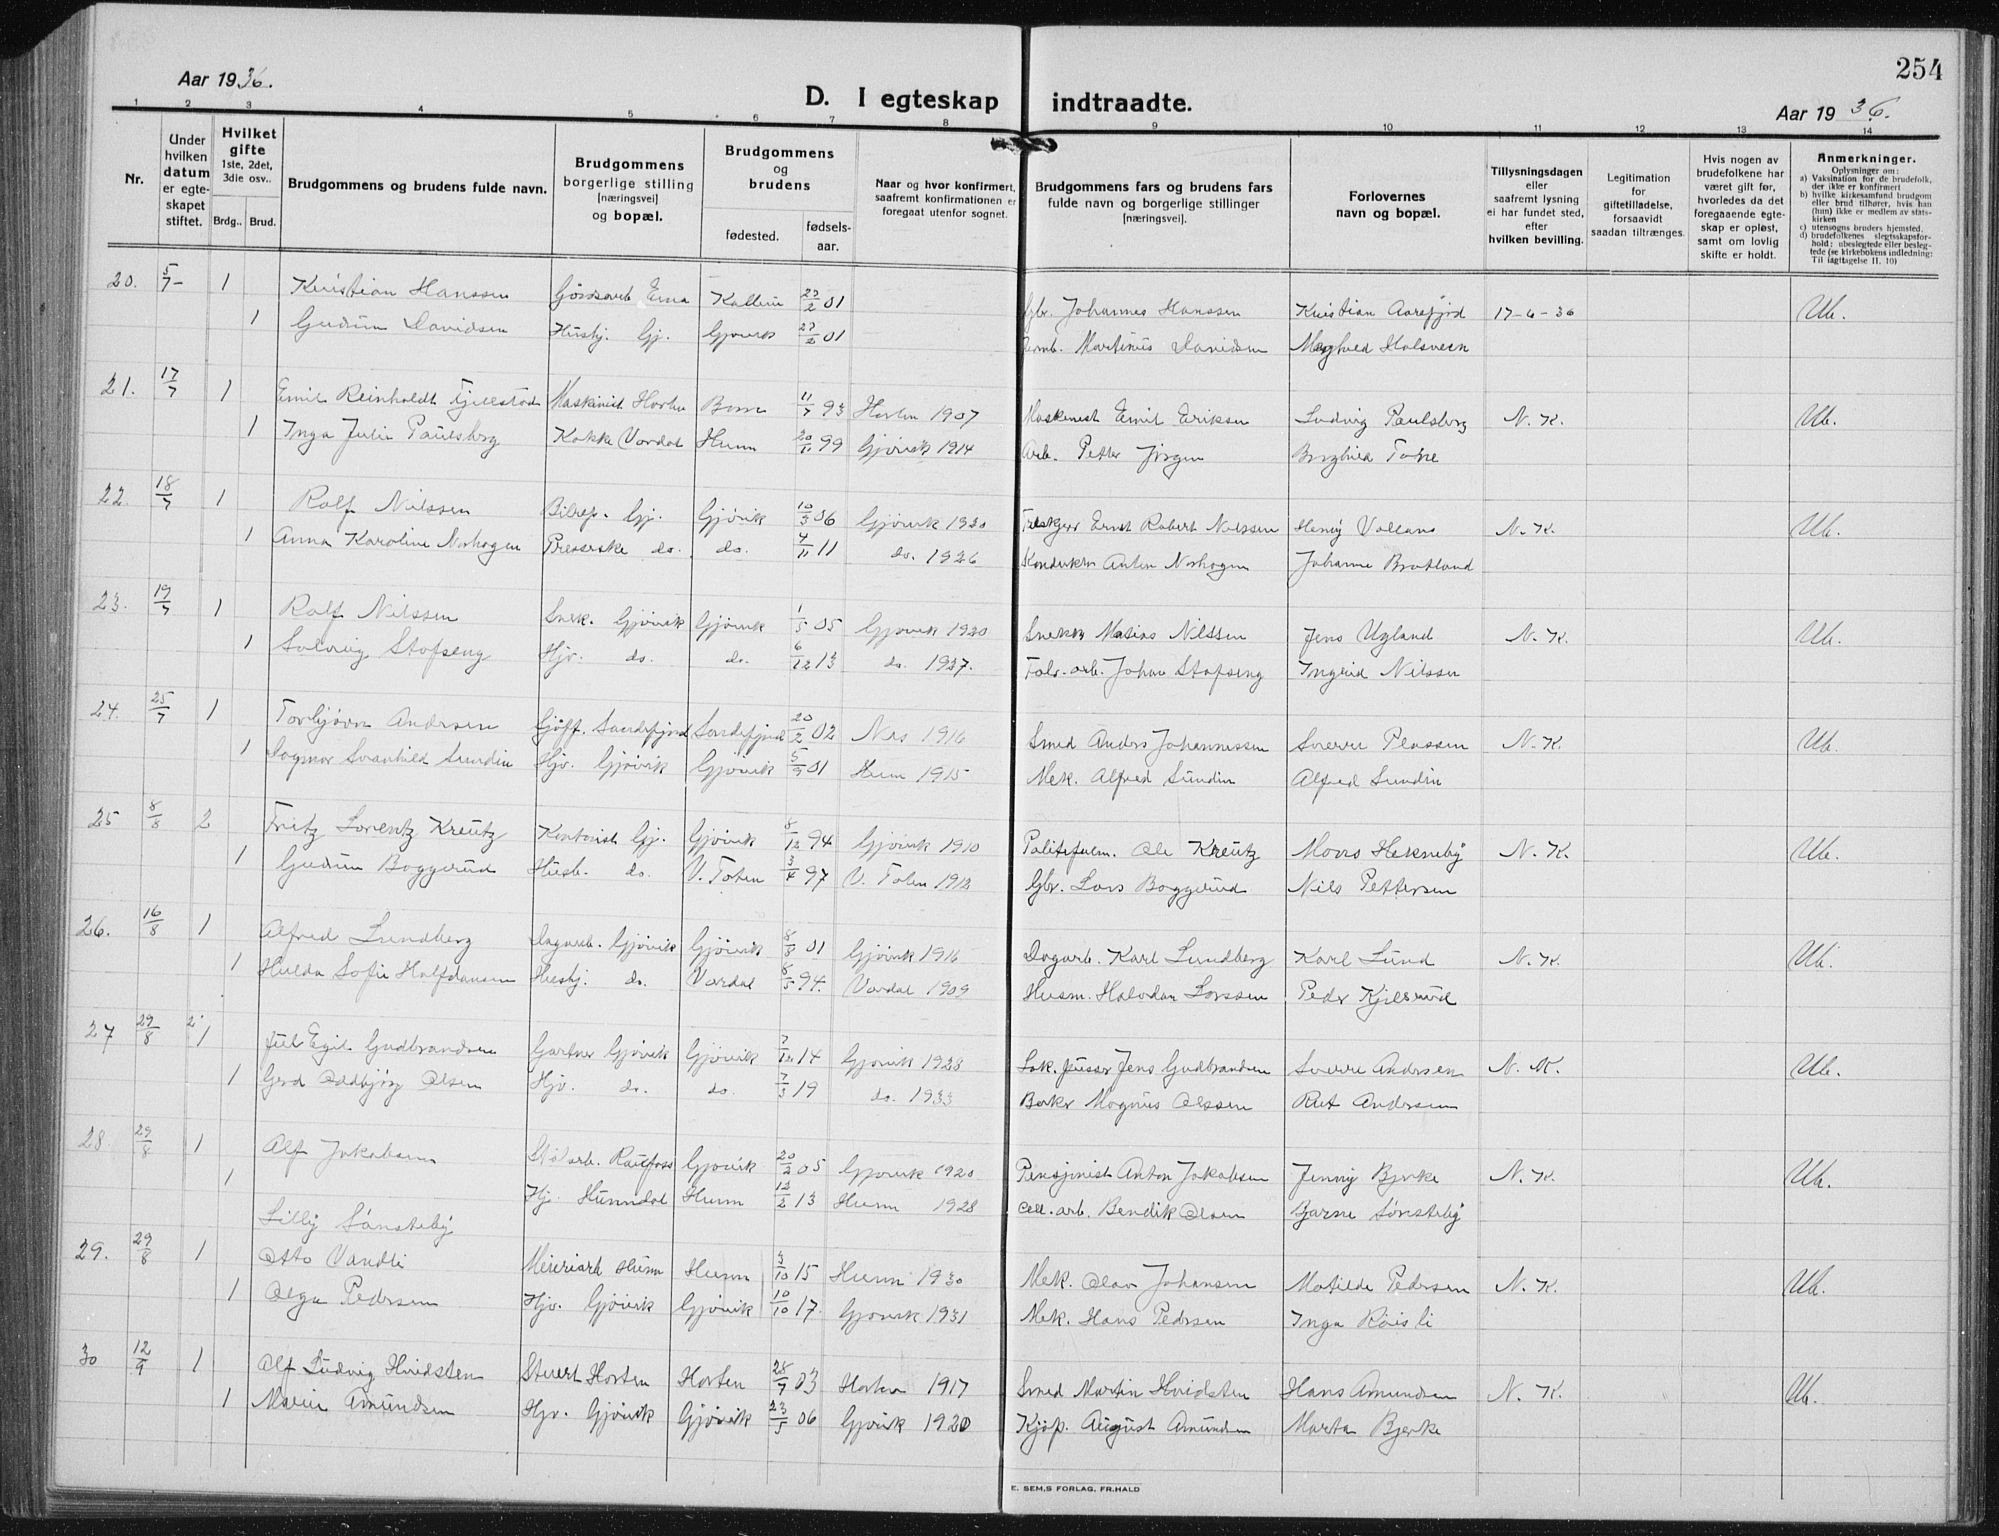 254
Aar 1936.
D. I egteskap indtraadte.
Aar 1936.
1 2 3 4 5 6 7 8 9 10 11 12 13 14
Nr.
Under hvilken datum er egte-skapet stiftet.
Hvilket gifte 1ste, 2det, 3die osv..
Brdg.. Brud.
Brudgommens og brudens fulde navn.
Brudgommens borgerlige stilling [næringsvei] og bopæl.
Brudgommens og brudens
fødested.
fødsels-aar.
Naar og hvor konfirmert, saafremt konfirmationen er foregaat utenfor sognet.
Brudgommens fars og brudens fars fulde navn og borgerlige stillinger [næringsvei].
Forlovernes navn og bopæl.
Tillysningsdagen eller saafremt lysning ei har fundet sted, efter hvilken bevilling.
Legitimation for giftetilladelse, forsaavidt saadan tiltrænges.
Hvis nogen av brudefolkene har været gift før, hvorledes da det foregaaende egte-skap er opløst, samt om lovlig skifte er holdt.
Anmerkninger.
Oplysninger om:
a) Vaksination for de brudefolk, der ikke er konfirmert
b) hvilke kirkesamfund brudgom eller brud tilhører, hvis han (hun) ikke er medlem av stats-kirken
c) utensogns bruders hjemsted.
d) brudefolkenes slegtsskapsfor-hold: ubeslegtede eller besleg-tede (se kirkebokens indledning: Til iagttagelse II, 10)
20. 5/7 1 Kristian Hanssen Kallum 27/2 01 Gbr. Johannes Hanssen Kristian Aarsfjord 17-6-36 Ub.
1 Gudrun Davidsen Husbj. Gj. Gjøvik 27/2 01 Martinus Davidsen Halsveen
21. 17/7 1 Emil Reinholdt Fjellstad Maskinist Horten Borre 11/7 93 Horten 1907 Maskinist Emil Eriksen Ludvig Paulsberg N. K. Ub.
1 Inga Julie Paulsberg Kokke Vardal Hunn 20/11 99 Gjøvik 1914 Arb. Petter Jørgen Borghild
22. 18/7 1 Rolf Nilssen Bilrep. Gj. Gjøvik 10/3 06 Gjøvik 1920 Ernst Robert Nilssen Henry N. K. Ub.
1 Anna Karoline Norhagen Presserske do. do. 4/11 11 do. 1926 Konduktør Anton Norhagen Johanne Bratland
23. 19/7 1 Rolf Nilssen Snek. Gjøvik Gjøvik 1/5 05 Gjøvik 1920 Snekker Matias Nilssen Jens Ugland N. K. Ub.
1 Solveig Stofseng Hjv. do. do. 6/12 13 do. 1927. arb. Johan Stofseng Ingrid Nilssen
24. 25/7 1 Torbjørn Andersen Sandefjord Sandefjord 20/2 02 Nes 1916 Smed Anders Johannessen Sverre N. K. Ub.
1 Dagmar Svanhild Sundin Hjv. Gjøvik Gjøvik 5/9 01 Hunn 1915 Mek. Alfred Sundin Alfred Sundin
25 8/8 2 Fritz Lorentz Kreutz Kontorist Gj. Gjøvik 8/12 94 Gjøvik 1910 Politifulm. Ole Kreutz Heksneby N. K. Ub.
1 Gudrun Boggerud Husb. do. V. Toten 3/4 97 V. Toten 1912 Gbr. Lars Boggerud Nils Pettersen
26. 16/8 1 Alfred Lundberg Dagarb. Gjøvik Gjøvik 8/8 01 Gjøvik 1916 Dagarb. Karl Lundberg Karl Lund N. K. Ub.
1 Hulda Sofie Halfdansen Husbj. do. Vardal 8/5 94. Vardal 1909 Husm. Halvdan Larssen Peder Kjelsrud
27 29/8 2' 1 Juel Egil Gudbrandsen Gartner Gjøvik Gjøvik 7/12 14 Gjøvik 1928 Lok. pusser Jens Gudbrandsen Sverre Andersen N. K. Ub.
1 Gerd Oddbjørg Olsen Hjv. do. do. 7/3 19 do. 1933 Baker Magnus Olssen Rut Andersen
28. 29/8 1 Alf Jakobsen Stålarb. Raufoss Gjøvik 20/2 05 Gjøvik 1920 Pensjonist Anton Jakobsen Jenny Bjerke N. K. Ub.
1 Hj. Hunndal Hunn 12/2 13 Hunn 1928 Cell. arb. Bendik Olsen Bjarne Sønsteby
Lilly Sønsteby
29. 29/8 1 Otto Vandli Meieriarb Hunn Hunn 3/10 15 Hunn 1930 Mek. Olav Johansen Matilde Pedersen N. K. Ub.
1 Olga Pedersen Hjv. Gjøvik Gjøvik 10/10 17. Gjøvik 1931 Mek. Hans Pedersen Inga Røisli
30 12/9 1 Alf Ludvig Hvidsten Stuert Horten Horten 28/7 03 Horten 1917 Smed Martin Hvidsten Hans Amundsen N. K. Ub.
1 Marie Amundsen Hjv. Gjøvik Gjøvik 23/5 06 Gjøvik 1920 Kjøp. August Amundsen Marta Bjerke
E. SEM,S FORLAG, FR.HALD